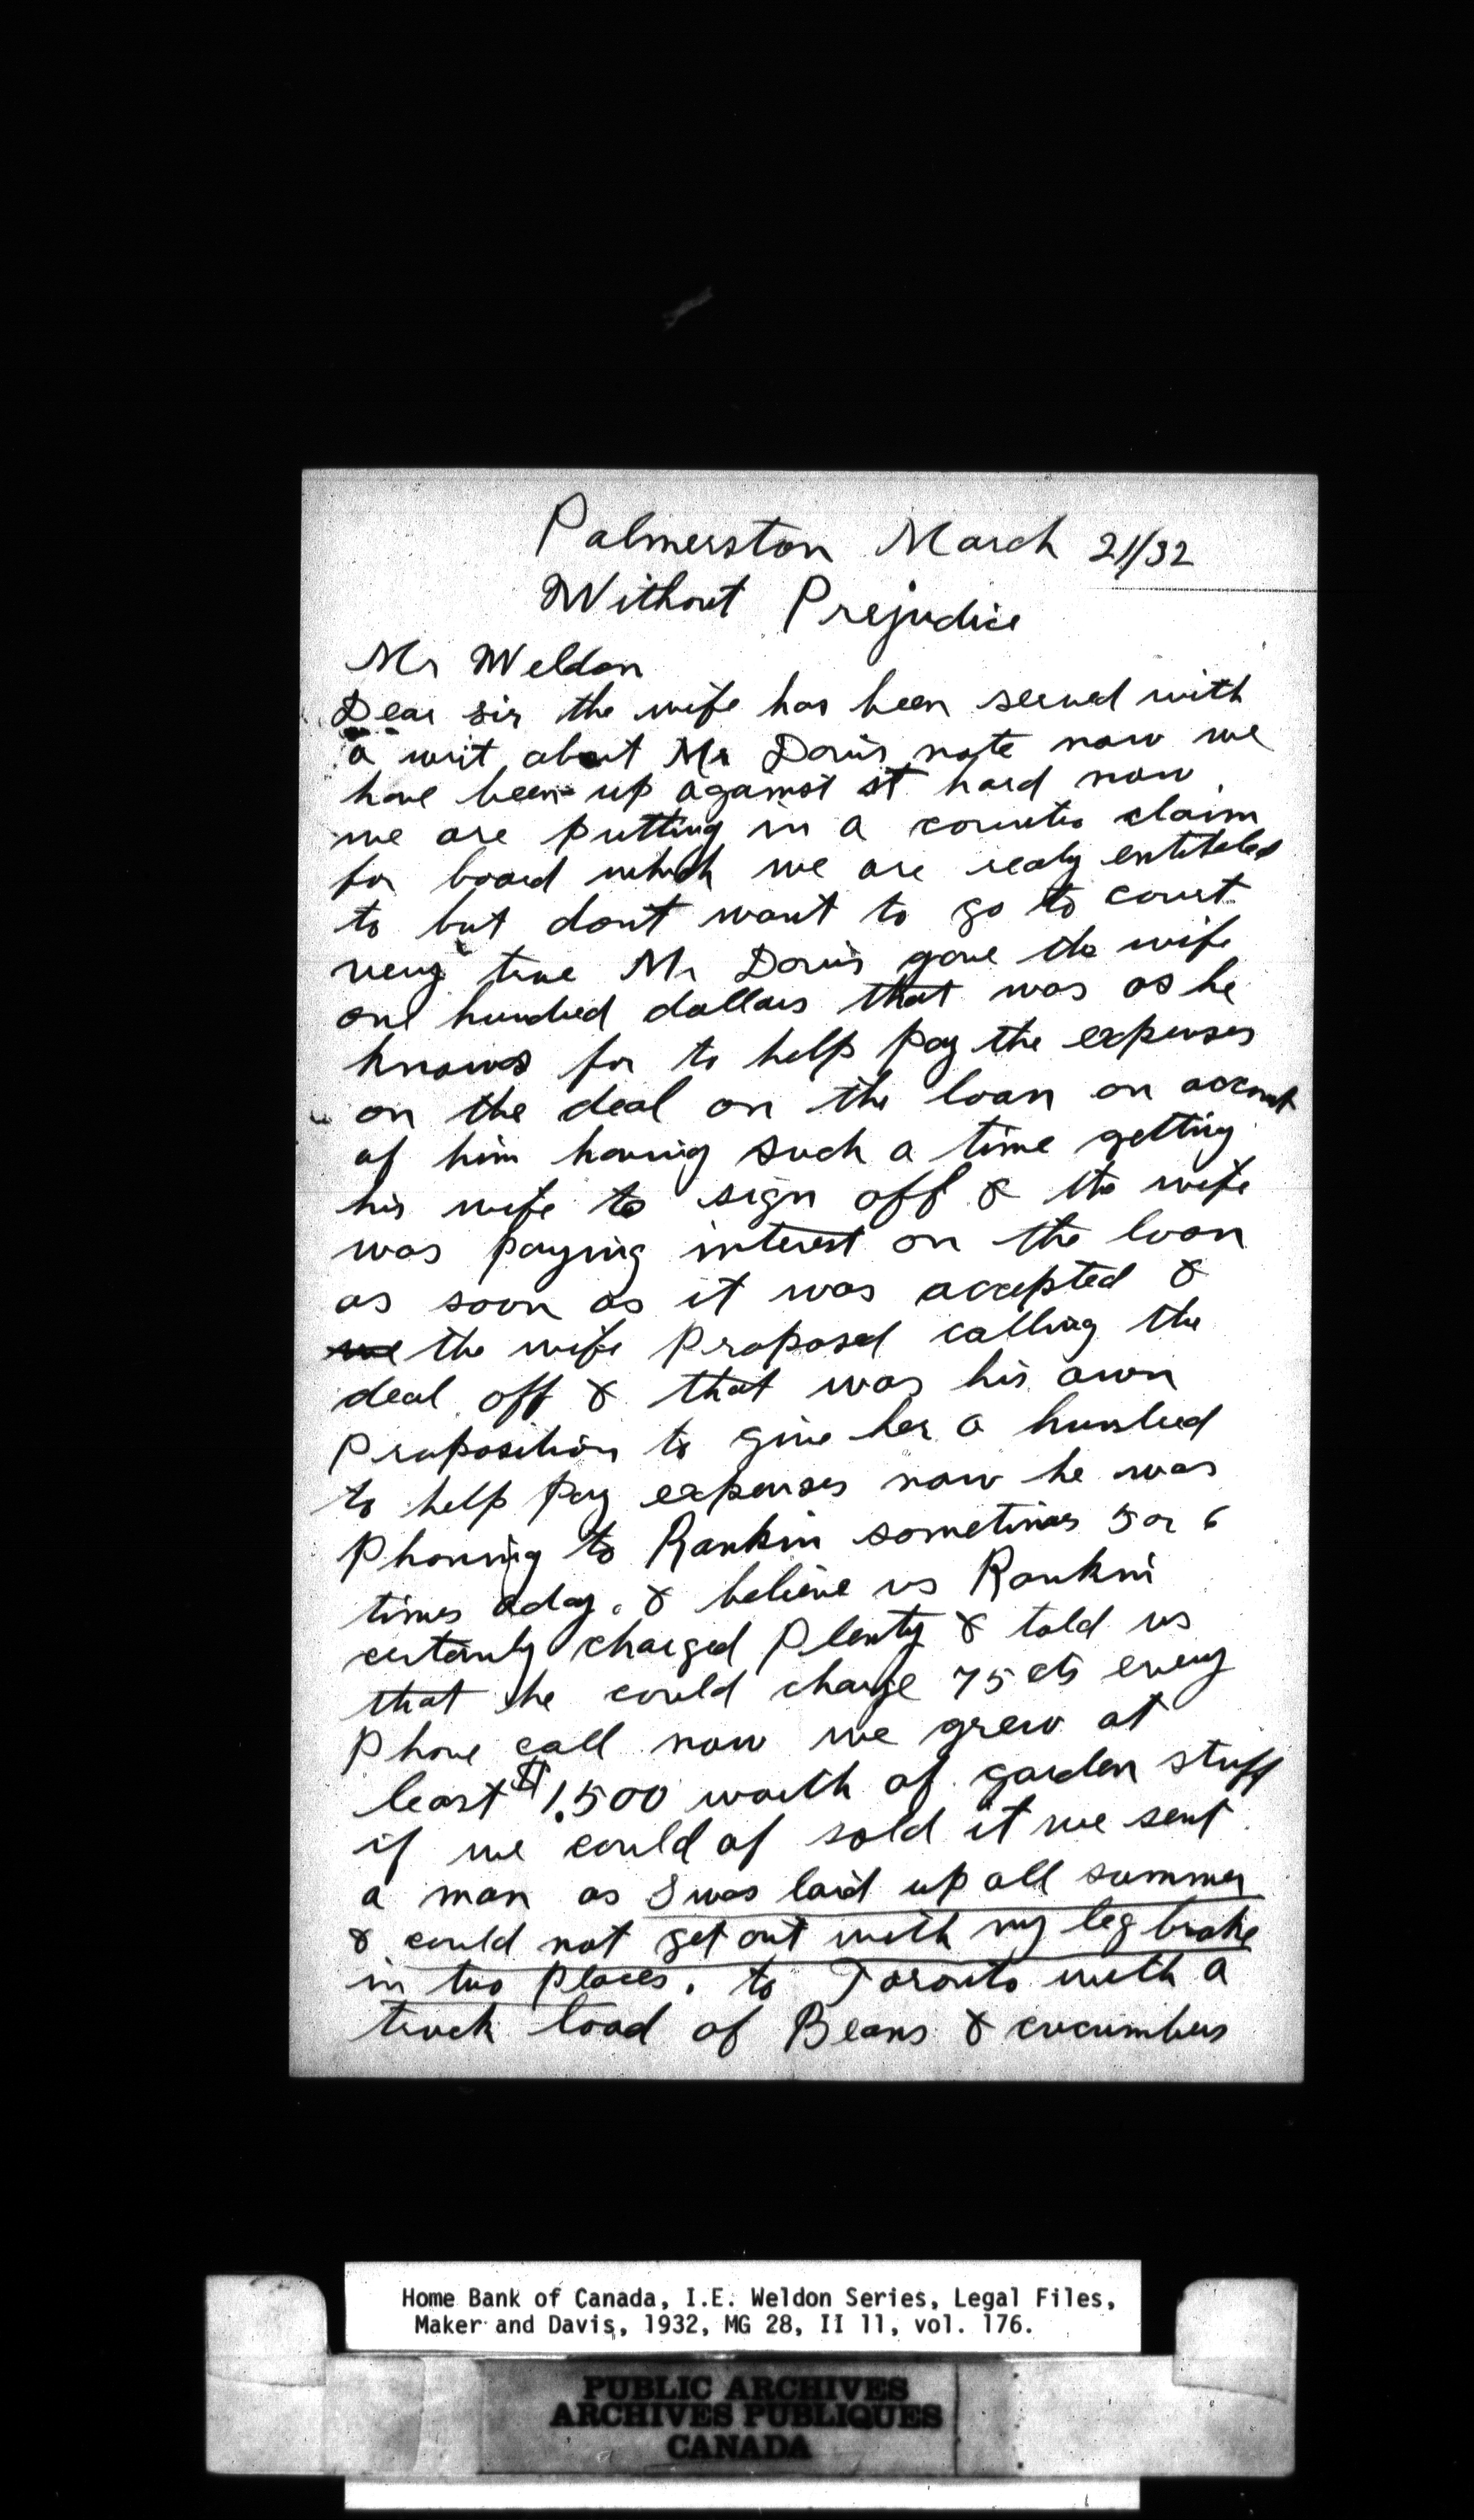 Palmerston March 21/32
Without Prejudice
Mr Weldon
Dear sir the wife has been served with
a writ about Mr Davis note now we
have been up against it hard now
we are putting in a counter claim
for board which we are realy entitled
to but dont want to go to court
very true Mr Davis gave the wife
one hundred dollars that was as he
knows for to help pay the expenses
on the deal on the loan on account
of him having such a time getting
his wife to sign off & the wife
was paying interest on the loan
as soon as it was accepted &
we the wife proposed calling the
deal off & that was his own
Proposition to give her a hundred
to help pay expenses now he was
Phoning to Rankin sometimes 5 or 6
times aday. & believe us Rankin
certainly charged Plenty & told us
that he could charge 75 cts every
Phone call now we grew at
least $1,500 worth of garden stuff
if we could of sold it we sent
a man as I was laid up all summer
& could not get out with my leg broke
in two places. to Toronto with a
truck load of Beans & cucumbers
Home Bank of Canada, I.E. Weldon Series, Legal Files,
Maker and Davis, 1932, MG 28, II 11, vol. 176.
PUBLIC ARCHIVES
ARCHIVES PUBLIQUES
CANADA